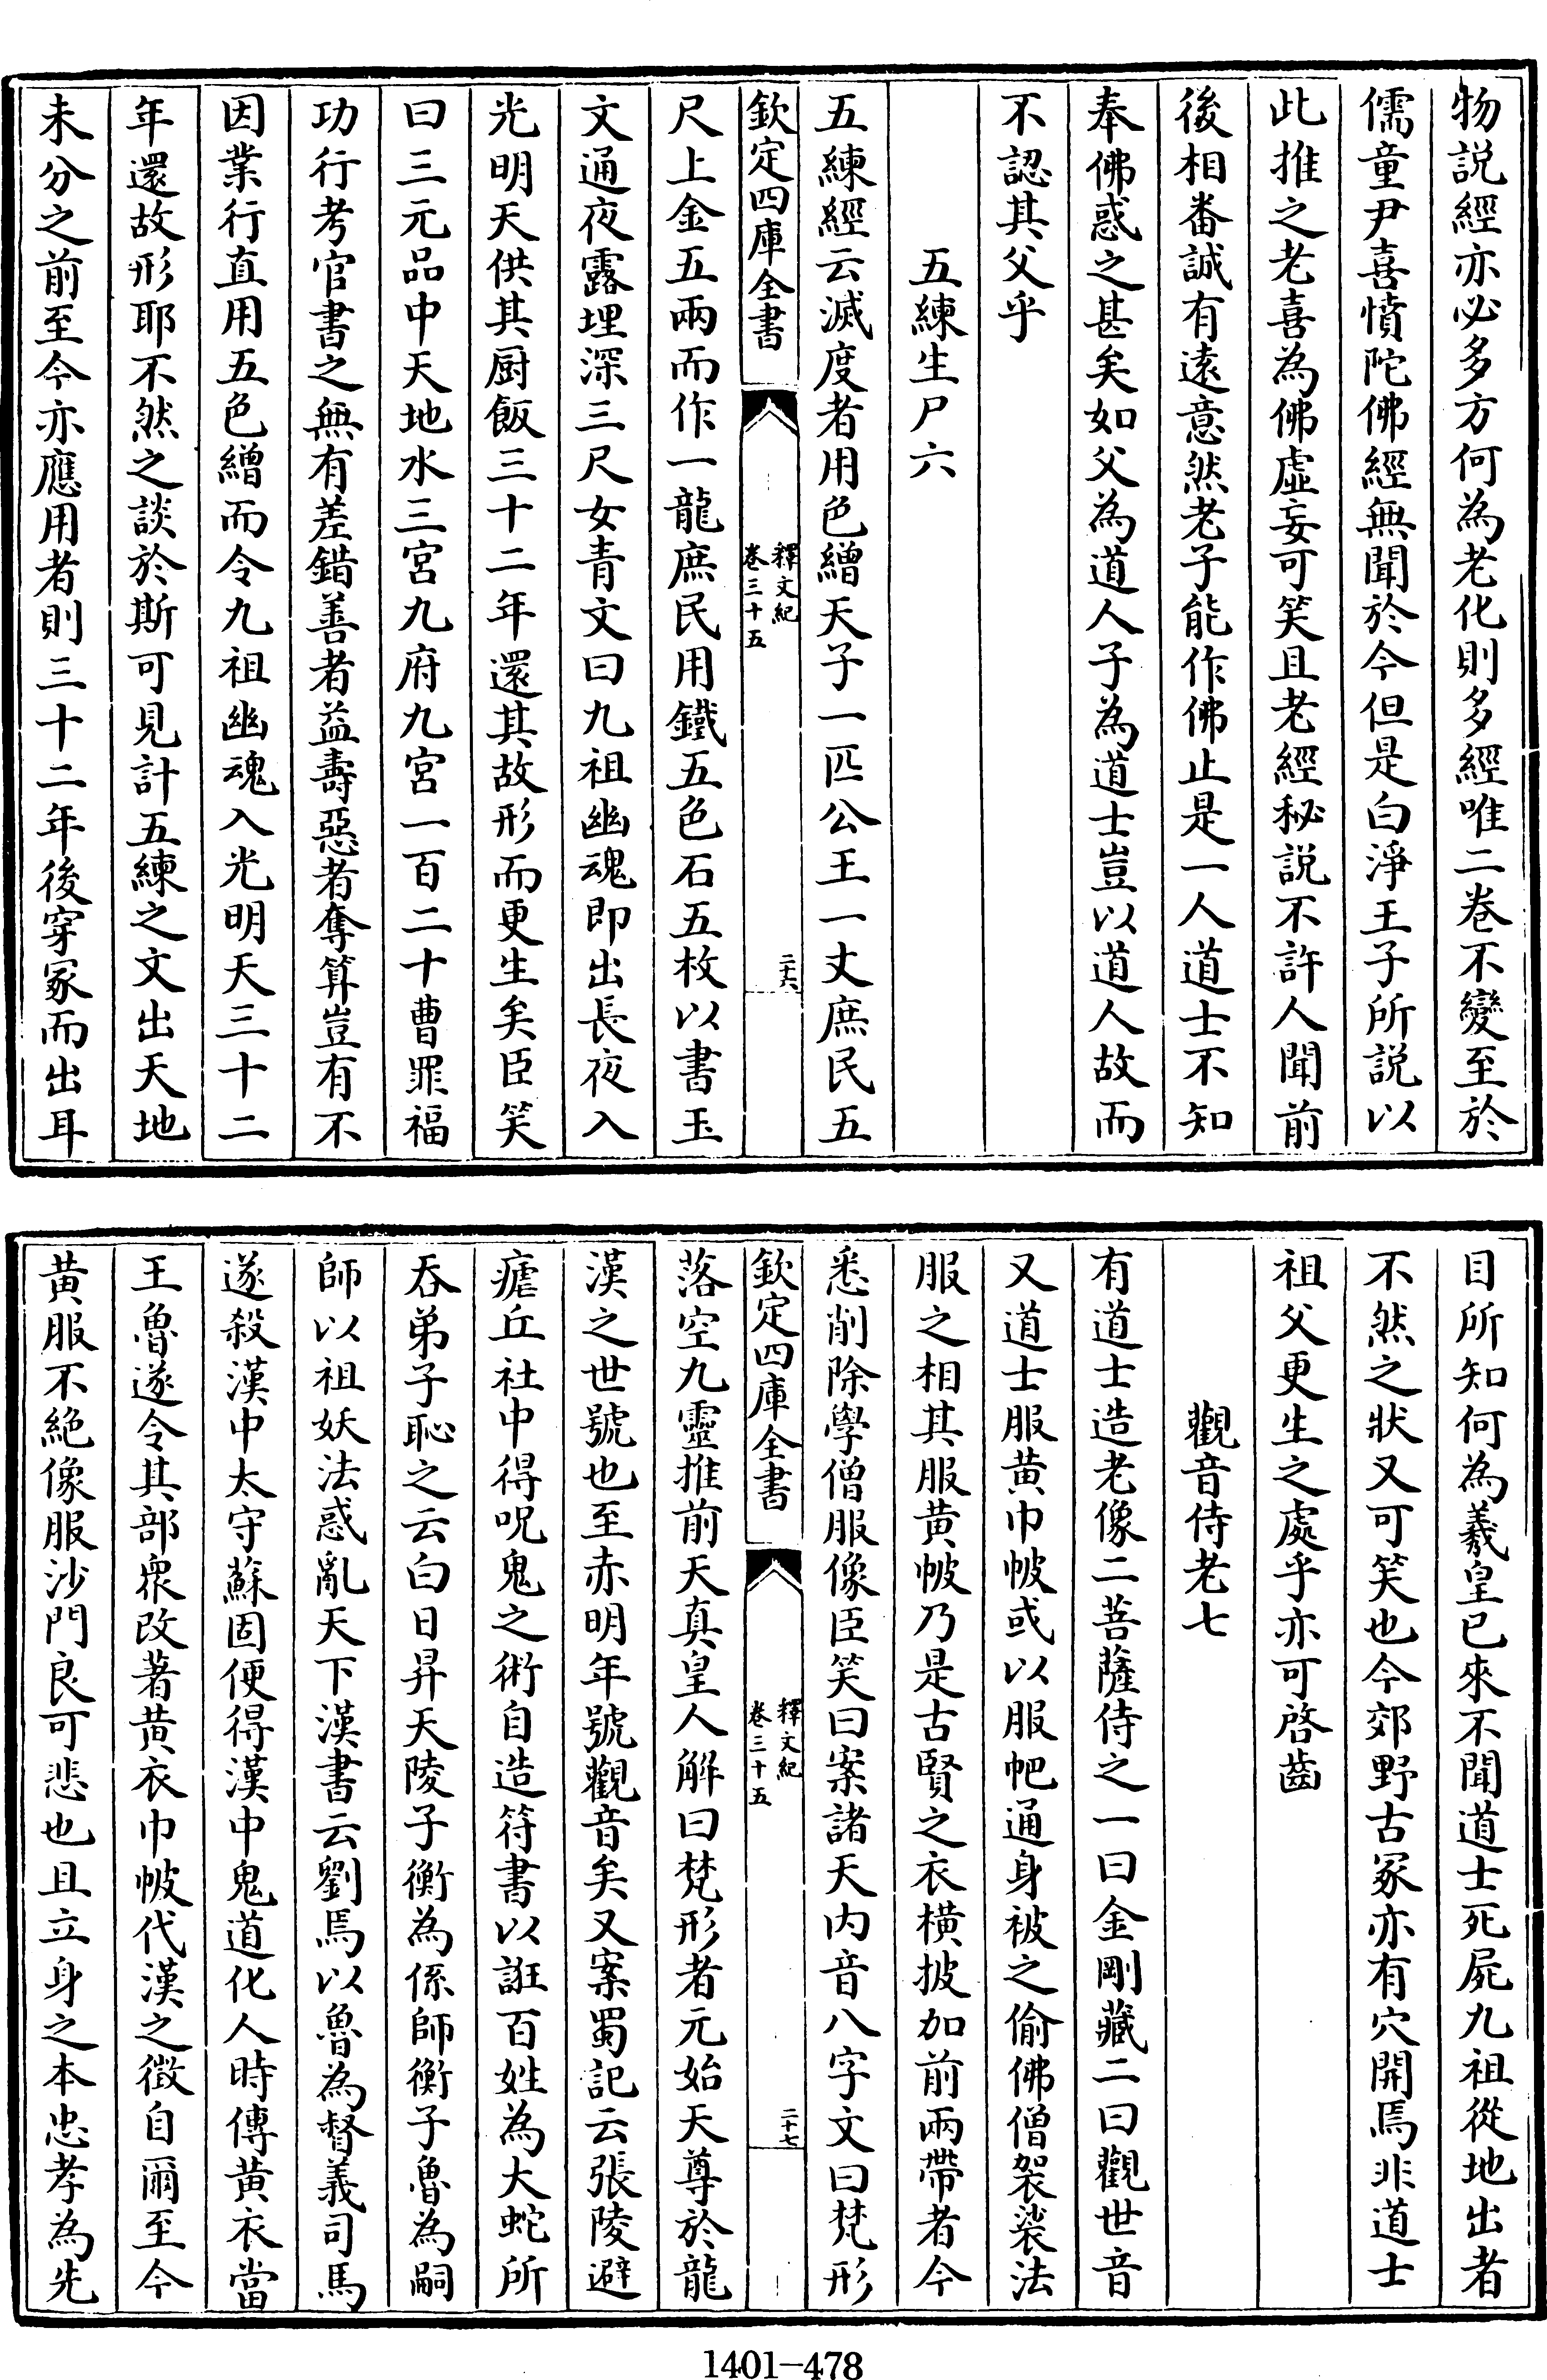 物説經亦必多方何為老化則多經唯二卷不變至於
儒童尹喜憤陀佛經無聞於今但是白淨王子所説以
此推之老喜為佛虛妄可笑且老經秘説不許人聞前
後相番誠有遠意然老子能作佛止是一人道士不知
奉佛惑之甚矣如父為道人子為道士豈以道人故而
不認其父乎
五練生尸六
五練經云滅度者用色繒天子一匹公王一丈庶民五
欽定四庫全書
釋文紀
卷三十五
二十六
尺上金五兩而作一龍庶民用鐵五色石五枚以書玉
文通夜露埋深三尺女青文曰九祖幽魂即出長夜入
光明天供其厨飯三十二年還其故形而更生矣臣笑
曰三元品中天地水三宮九府九宮一百二十曹罪福
功行考官書之無有差錯善者益壽惡者奪算豈有不
因業行直用五色繒而令九祖幽魂入光明天三十二
年還故形耶不然之談於斯可見計五練之文出天地
未分之前至今亦應用者則三十二年後穿冢而出耳
目所知何為羲皇已來不聞道士死屍九祖從地出者
不然之狀又可笑也今郊野古冢亦有穴開焉非道士
祖父更生之處乎亦可啓齒
觀音侍老七
有道士造老像二菩薩侍之一曰金剛藏二曰觀世音
又道士服黄巾帔或以服帊通身被之偷佛僧袈裟法
服之相其服黄帔乃是古賢之衣橫披加前兩帶者今
悉削除學僧服像臣笑曰案諸天内音八字文曰梵形
欽定四庫全書
釋文紀
卷三十五
二十七
落空九靈推前天真皇人解曰梵形者元始天尊於龍
漢之世號也至赤明年號觀音矣又案蜀記云張陵避
瘧丘社中得呪鬼之術自造符書以誑百姓為大蛇所
吞弟子恥之云白日昇天陵子衡為係師衡子魯為嗣
師以祖妖法惑亂天下漢書云劉焉以魯為督義司馬
遂殺漢中太守蘇固便得漢中鬼道化人時傳黄衣當
王魯遂令其部衆改著黄衣巾帔代漢之徴自爾至今
黄服不絶像服沙門良可悲也且立身之本忠孝為先
1401-478